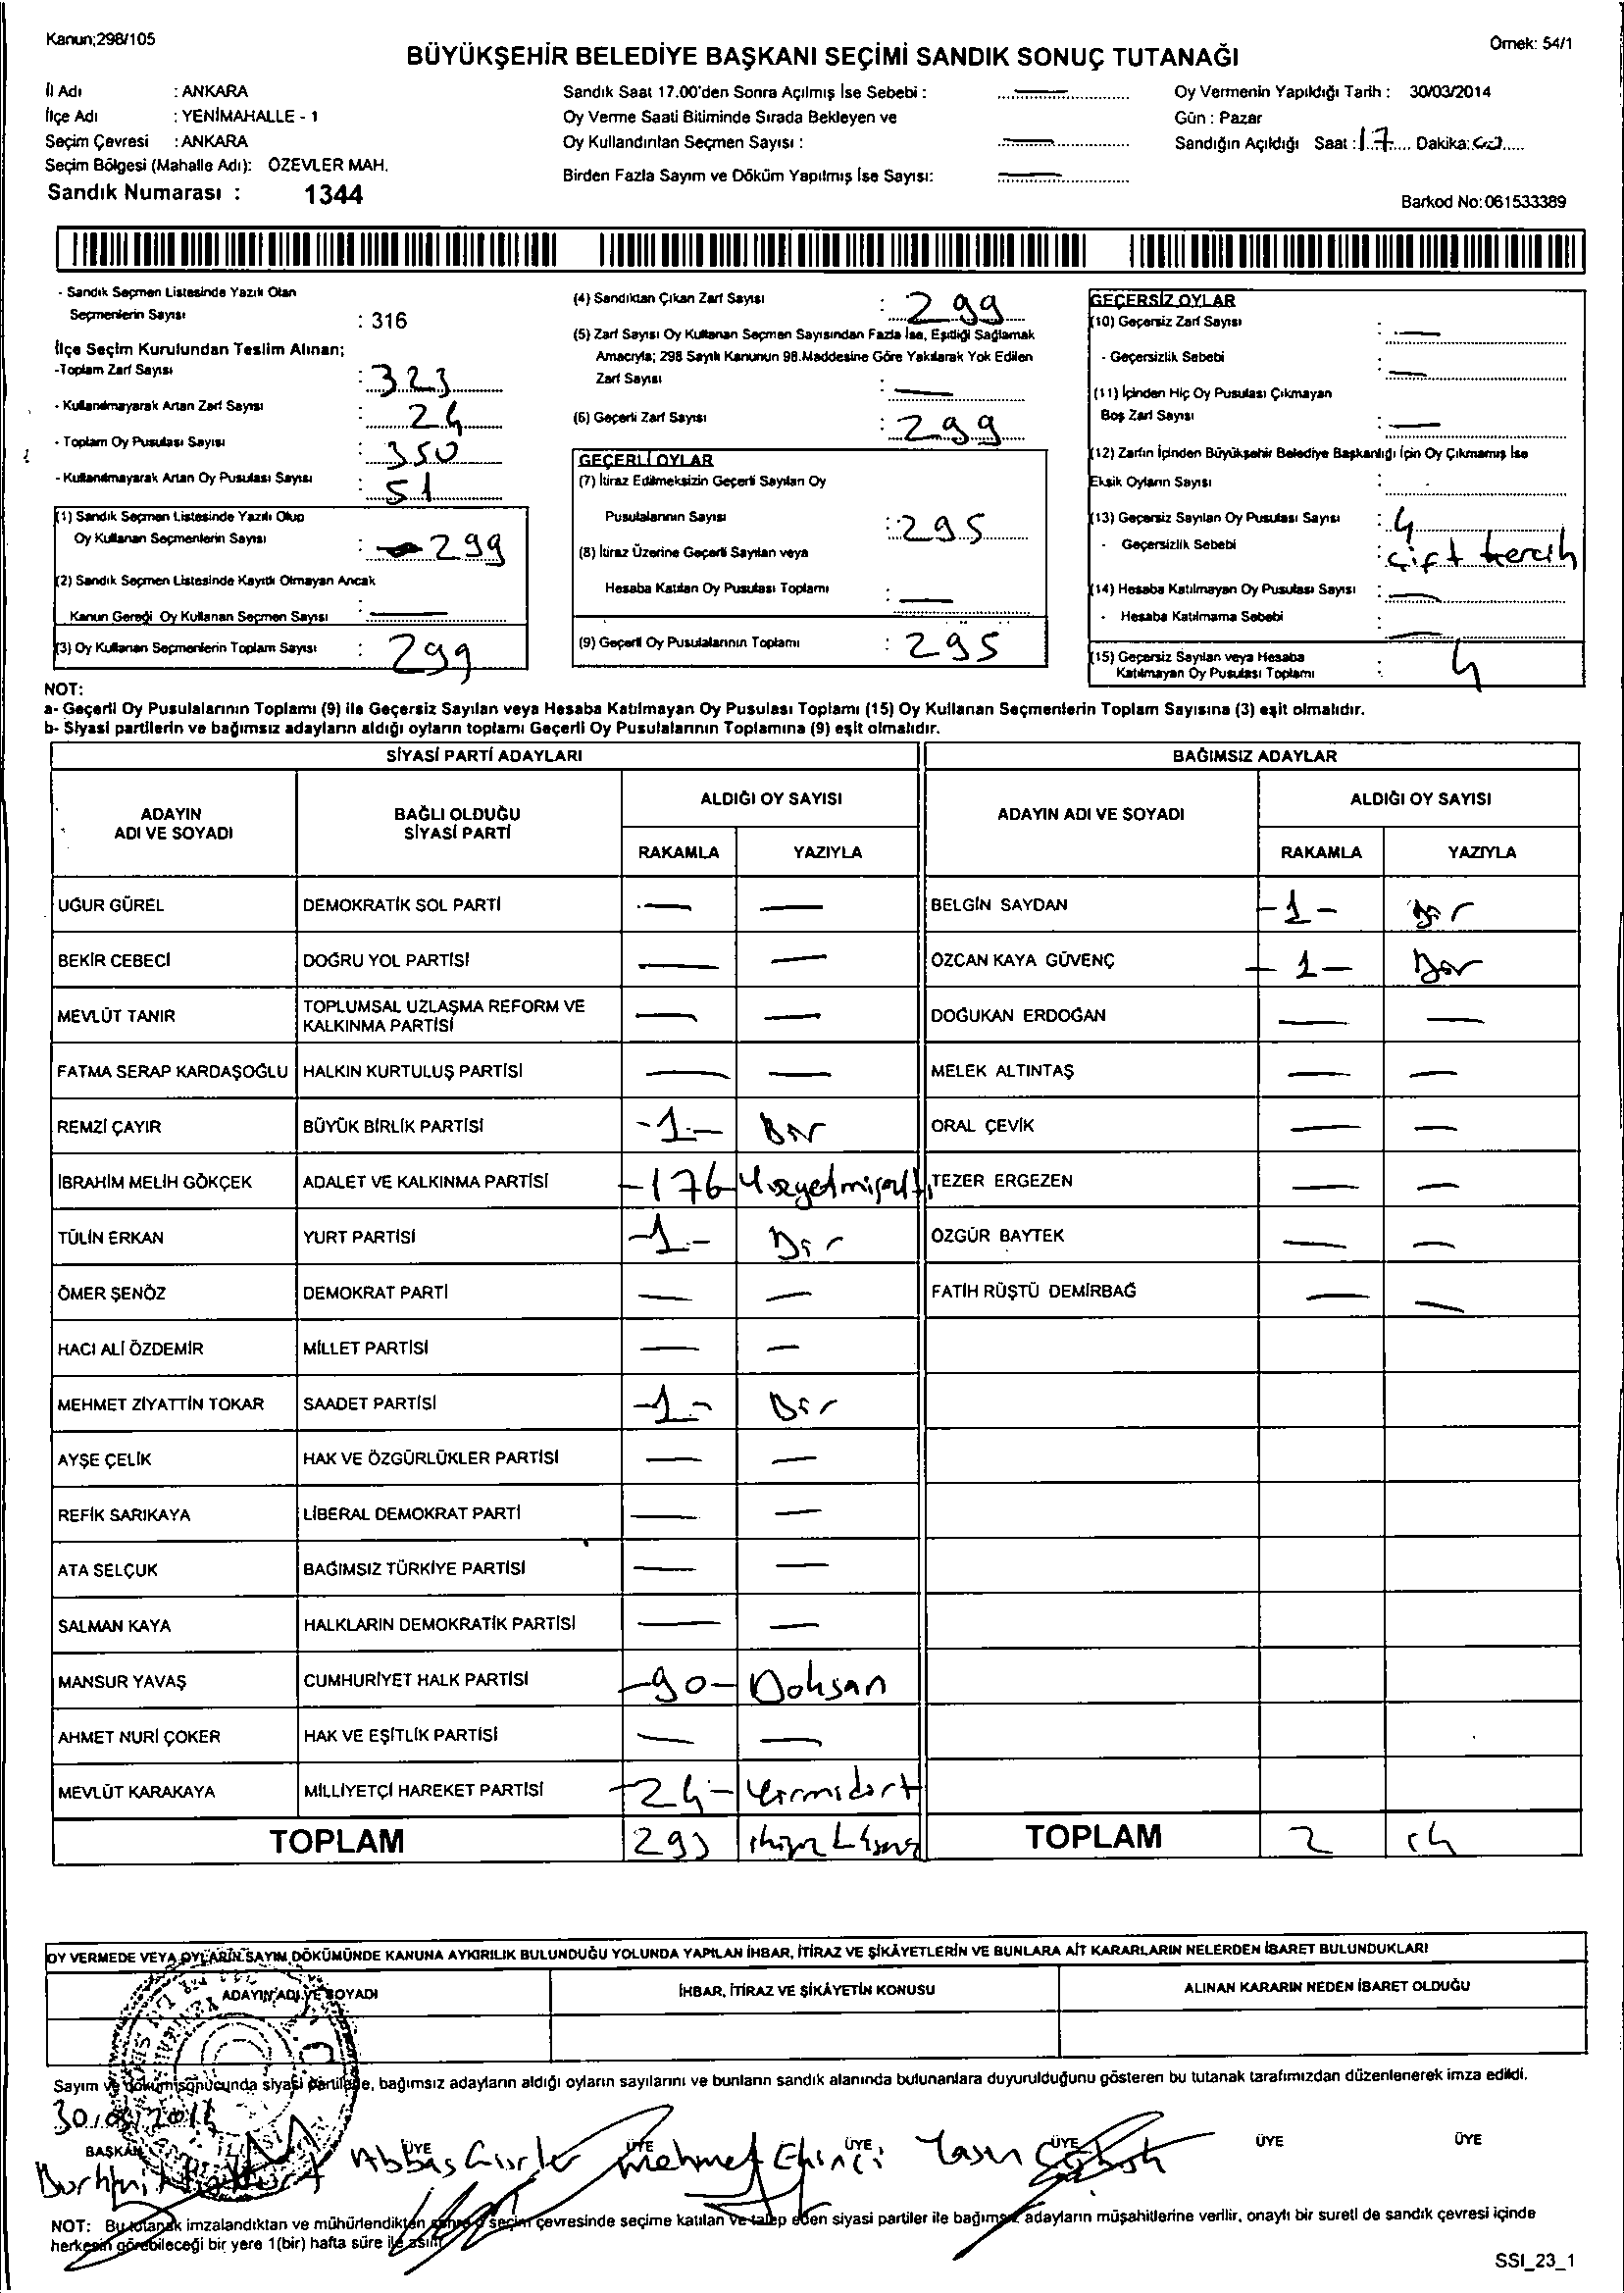 Kanun;298/105
Örnek: 54/1
BÜYÜKŞEHİR BELEDİYE BAŞKANI SEÇİMİ SANDIK SONUÇ TUTANAĞI
İl Adı : ANKARA
İlçe Adı : YENİMAHALLE - 1
Seçim Çevresi : ANKARA
Seçim Bölgesi (Mahalle Adı): ÖZEVLER MAH.
Sandık Numarası : 1344
Sandık Saat 17.00'den Sonra Açılmış İse Sebebi : —
Oy Verme Saati Bitiminde Sırada Bekleyen ve
Oy Kullandırılan Seçmen Sayısı : —
Birden Fazla Sayım ve Döküm Yapılmış İse Sayısı: —
Oy Vermenin Yapıldığı Tarih : 30/03/2014
Gün : Pazar
Sandığın Açıldığı Saat : 17 Dakika:
Barkod No: 061533389
- Sandık Seçmen Listesinde Yazılı Olan
Seçmenlerin Sayısı : 316
İlçe Seçim Kurulundan Teslim Alınan;
-Toplam Zarf Sayısı : 323
- Kullanılmayarak Artan Zarf Sayısı : 24
- Toplam Oy Pusulası Sayısı : 350
- Kullanılmayarak Artan Oy Pusulası Sayısı : 51
(1) Sandık Seçmen Listesinde Yazılı Olup
Oy Kullanan Seçmenlerin Sayısı : 299
(2) Sandık Seçmen Listesinde Kayıtlı Olmayan Ancak
Kanun Gereği Oy Kullanan Seçmen Sayısı : —
(3) Oy Kullanan Seçmenlerin Toplam Sayısı : 299
(4) Sandıktan Çıkan Zarf Sayısı : 299
(5) Zarf Sayısı Oy Kullanan Seçmen Sayısından Fazla İse, Eşitliği Sağlamak
Amacıyla; 298 Sayılı Kanunun 98.Maddesine Göre Yakılarak Yok Edilen
Zarf Sayısı : —
(6) Geçerli Zarf Sayısı : 299
GEÇERLİ OYLAR
(7) İtiraz Edilmeksizin Geçerli Sayılan Oy
Pusulalarının Sayısı : 295
(8) İtiraz Üzerine Geçerli Sayılan veya
Hesaba Katılan Oy Pusulası Toplamı : —
(9) Geçerli Oy Pusulalarının Toplamı : 295
GEÇERSİZ OYLAR
(10) Geçersiz Zarf Sayısı : —
- Geçersizlik Sebebi : —
(11) İçinden Hiç Oy Pusulası Çıkmayan
Boş Zarf Sayısı : —
(12) Zarfın İçinden Büyükşehir Belediye Başkanlığı İçin Oy Çıkmamış İse
Eksik Oyların Sayısı :
(13) Geçersiz Sayılan Oy Pusulası Sayısı : 4
- Geçersizlik Sebebi : Çift tercih
(14) Hesaba Katılmayan Oy Pusulası Sayısı : —
- Hesaba Katılmama Sebebi : —
(15) Geçersiz Sayılan veya Hesaba
Katılmayan Oy Pusulası Toplamı : 4
NOT:
a- Geçerli Oy Pusulalarının Toplamı (9) ile Geçersiz Sayılan veya Hesaba Katılmayan Oy Pusulası Toplamı (15) Oy Kullanan Seçmenlerin Toplam Sayısına (3) eşit olmalıdır.
b- Siyasi partilerin ve bağımsız adayların aldığı oyların toplamı Geçerli Oy Pusulalarının Toplamına (9) eşit olmalıdır.
SİYASİ PARTİ ADAYLARI BAĞIMSIZ ADAYLAR
ADAYIN ADI VE SOYADI BAĞLI OLDUĞU SİYASİ PARTİ ALDIĞI OY SAYISI ADAYIN ADI VE SOYADI ALDIĞI OY SAYISI
RAKAMLA YAZIYLA RAKAMLA YAZIYLA
UĞUR GÜREL DEMOKRATİK SOL PARTİ — — BELGİN SAYDAN -1- Bir
BEKİR CEBECİ DOĞRU YOL PARTİSİ — — ÖZCAN KAYA GÜVENÇ -1- Bir
MEVLÜT TANIR TOPLUMSAL UZLAŞMA REFORM VE KALKINMA PARTİSİ — — DOĞUKAN ERDOĞAN — —
FATMA SERAP KARDAŞOĞLU HALKIN KURTULUŞ PARTİSİ — — MELEK ALTINTAŞ — —
REMZİ ÇAYIR BÜYÜK BİRLİK PARTİSİ -1- Bir ORAL ÇEVİK — —
İBRAHİM MELİH GÖKÇEK ADALET VE KALKINMA PARTİSİ -176- Yüzyetmişaltı TEZER ERGEZEN — —
TÜLİN ERKAN YURT PARTİSİ -1- Bir ÖZGÜR BAYTEK — —
ÖMER ŞENÖZ DEMOKRAT PARTİ — — FATİH RÜŞTÜ DEMİRBAĞ — —
HACI ALİ ÖZDEMİR MİLLET PARTİSİ — —
MEHMET ZİYATTİN TOKAR SAADET PARTİSİ -1- Bir
AYŞE ÇELİK HAK VE ÖZGÜRLÜKLER PARTİSİ — —
REFİK SARIKAYA LİBERAL DEMOKRAT PARTİ — —
ATA SELÇUK BAĞIMSIZ TÜRKİYE PARTİSİ — —
SALMAN KAYA HALKLARIN DEMOKRATİK PARTİSİ — —
MANSUR YAVAŞ CUMHURİYET HALK PARTİSİ -90- Doksan
AHMET NURİ ÇOKER HAK VE EŞİTLİK PARTİSİ — —
MEVLÜT KARAKAYA MİLLİYETÇİ HAREKET PARTİSİ -24- Yirmidört
TOPLAM 293 TOPLAM 2
OY VERMEDE VEYA OYLARIN SAYIM DÖKÜMÜNDE KANUNA AYKIRILIK BULUNDUĞU YOLUNDA YAPILAN İHBAR, İTİRAZ VE ŞİKÂYETLERİN VE BUNLARA AİT KARARLARIN NELERDEN İBARET BULUNDUKLARI
ADAYIN ADI VE SOYADI İHBAR, İTİRAZ VE ŞİKÂYETİN KONUSU ALINAN KARARIN NEDEN İBARET OLDUĞU
Sayım ve dökümü sonucunda siyasi partilerle, bağımsız adayların aldığı oyların sayılarını ve bunların sandık alanında bulunanlara duyurulduğunu gösteren bu tutanak tarafımızdan düzenlenerek imza edildi.
BAŞKAN ÜYE ÜYE ÜYE ÜYE ÜYE ÜYE
Abbas Mehmet Ekinci
NOT: Bu tutanak imzalandıktan ve mühürlendikten sonra o seçim çevresinde seçime katılan ve talep eden siyasi partiler ile bağımsız adayların müşahitlerine verilir, onaylı bir sureti de sandık çevresi içinde
herkesin görebileceği bir yere 1(bir) hafta süre ile asılır.
SSI_23_1